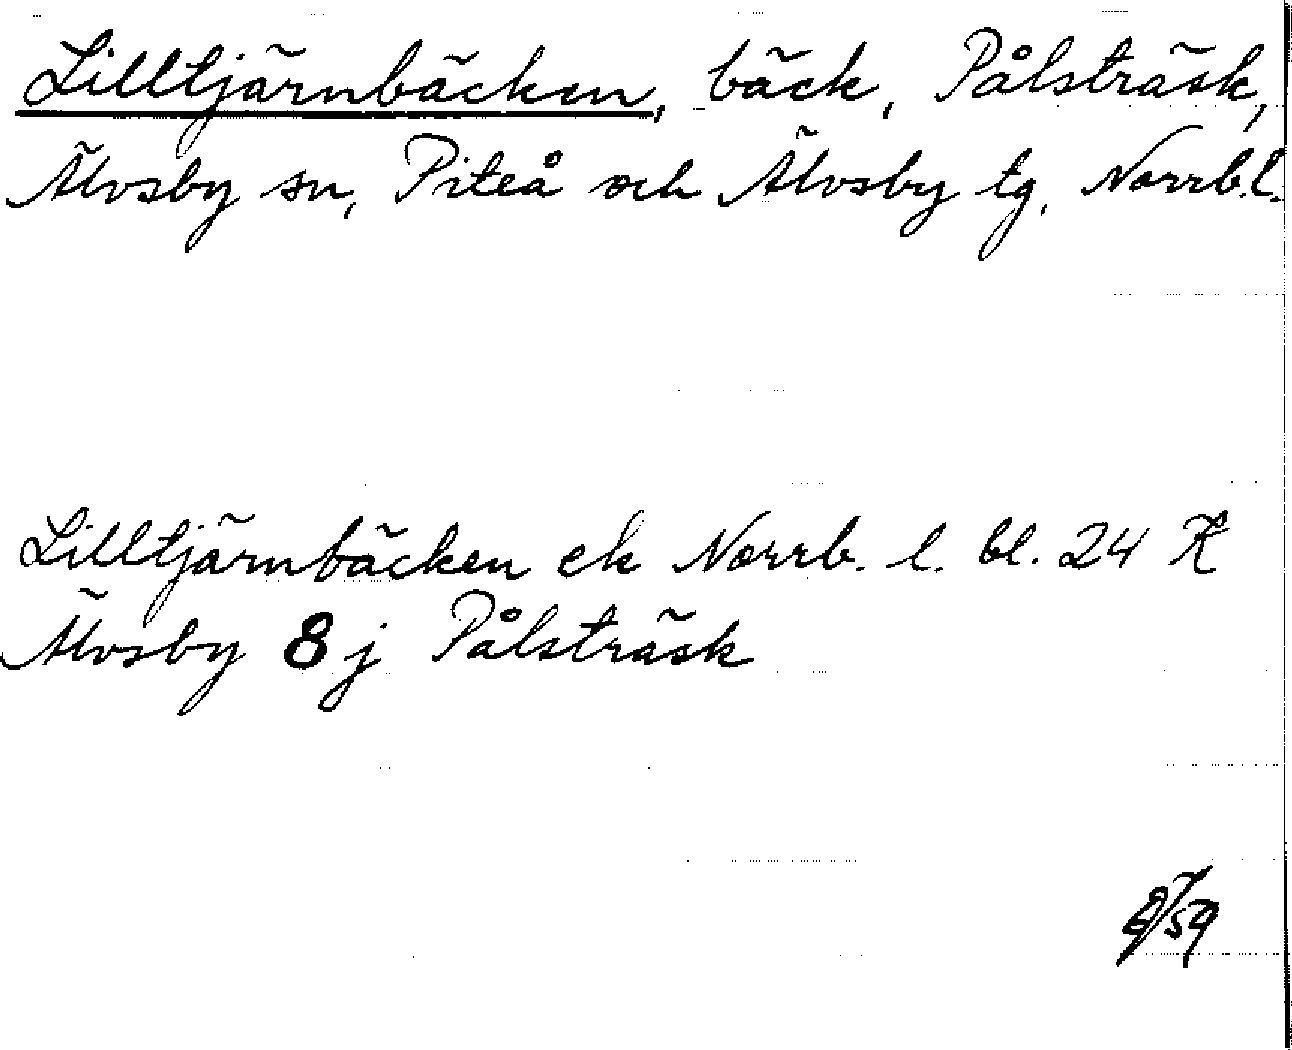 Lilltjärnbäcken, bäck, Pålsträsk,
Älvsby sn, Piteå och Älvsby tg, Norrb.l.
Lilltjärnbäcken ek Norrb. l. bl. 24 K
Älvsby 8j Pålsträsk